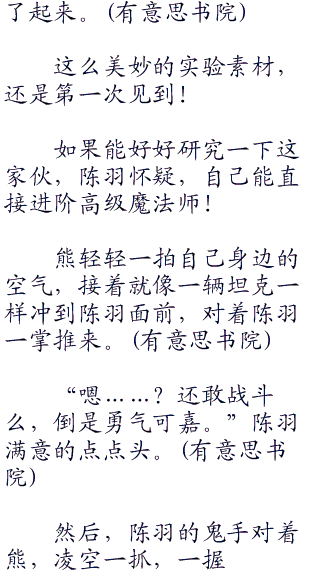 了起来。(有意思书院)
这么美妙的实验素材，
还是第一次见到！
如果能好好研究一下这
家伙，陈羽怀疑，自己能直
接进阶高级魔法师！
熊轻轻一拍自己身边的
空气，接着就像一辆坦克一
样冲到陈羽面前，对着陈羽
一掌推来。(有意思书院)
“嗯……？还敢战斗
么，倒是勇气可嘉。”陈羽
满意的点点头。(有意思书
院)
然后，陈羽的鬼手对着
熊，凌空一抓，一握